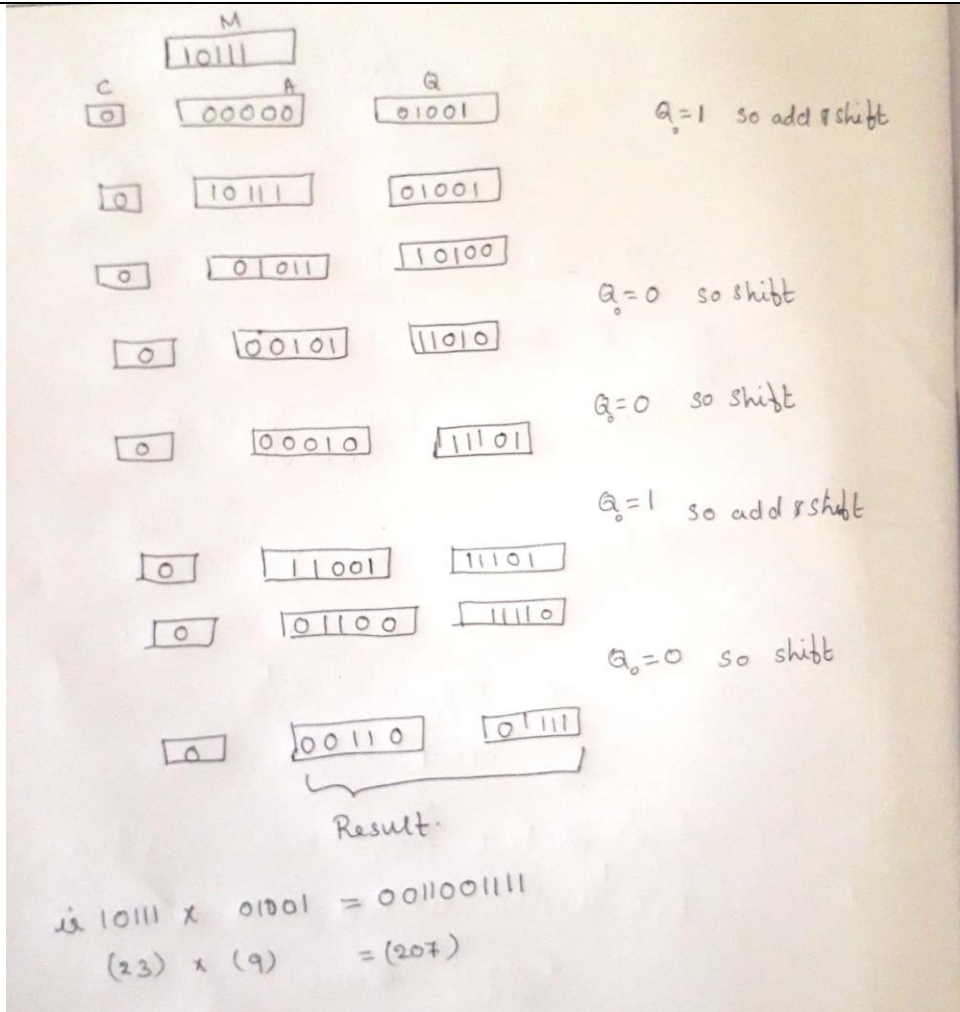 M
10111
C A Q
0 00000 01001 Q₀=1 so add & shift
0 10111 01001
0 01011 10100
Q₀=0 so shift
0 00101 11010
Q₀=0 so shift
0 00010 11101
Q₀=1 so add & shift
0 11001 11101
0 01100 11110
Q₀=0 so shift
0 00110 01111
Result.
ie 10111 x 01001 = 0011001111
(23) x (9) = (207)